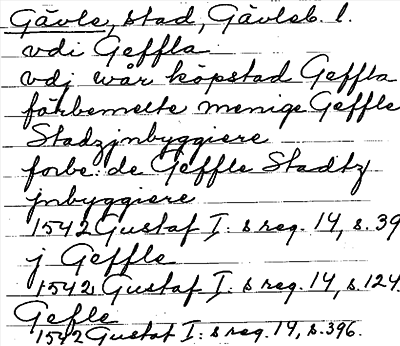 Gävle, stad, Gävleb. l.
vdi Geffla
vdj wår köpstad Geffla
förbemelte menige Geffle
Stadzjnbyggiere
forbe: de Geffle Stadtz
jnbyggiere
1542 Gustaf I: s reg. 14, s. 39
j Geffle
1542 Gustaf I: s reg. 14, s. 124.
Gefle
1542 Gustaf I: s reg. 14, s. 396.